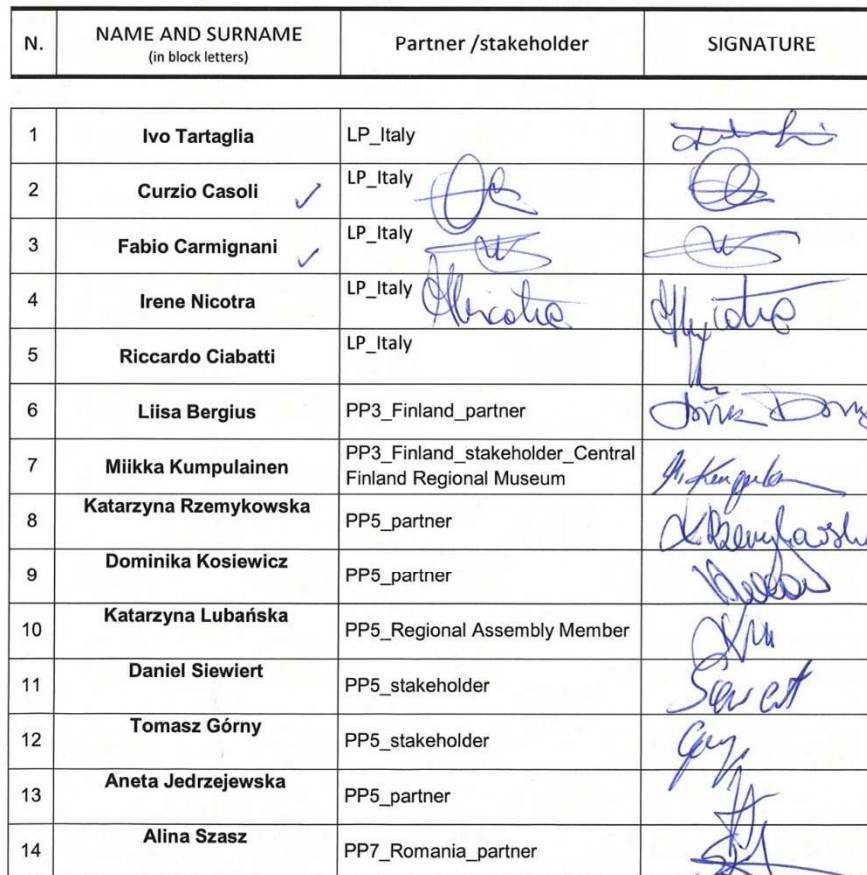 N. NAME AND SURNAME Partner /stakeholder SIGNATURE
(in block letters)
1 Ivo Tartaglia LP_Italy
2 Curzio Casoli LP_Italy
3 Fabio Carmignani LP_Italy
4 Irene Nicotra LP_Italy
5 Riccardo Ciabatti LP_Italy
6 Liisa Bergius PP3_Finland_partner
7 Miikka Kumpulainen PP3_Finland_stakeholder_Central
Finland Regional Museum
8 Katarzyna Rzemykowska PP5_partner
9 Dominika Kosiewicz PP5_partner
10 Katarzyna Lubańska PP5_Regional Assembly Member
11 Daniel Siewiert PP5_stakeholder
12 Tomasz Górny PP5_stakeholder
13 Aneta Jedrzejewska PP5_partner
14 Alina Szasz PP7_Romania_partner